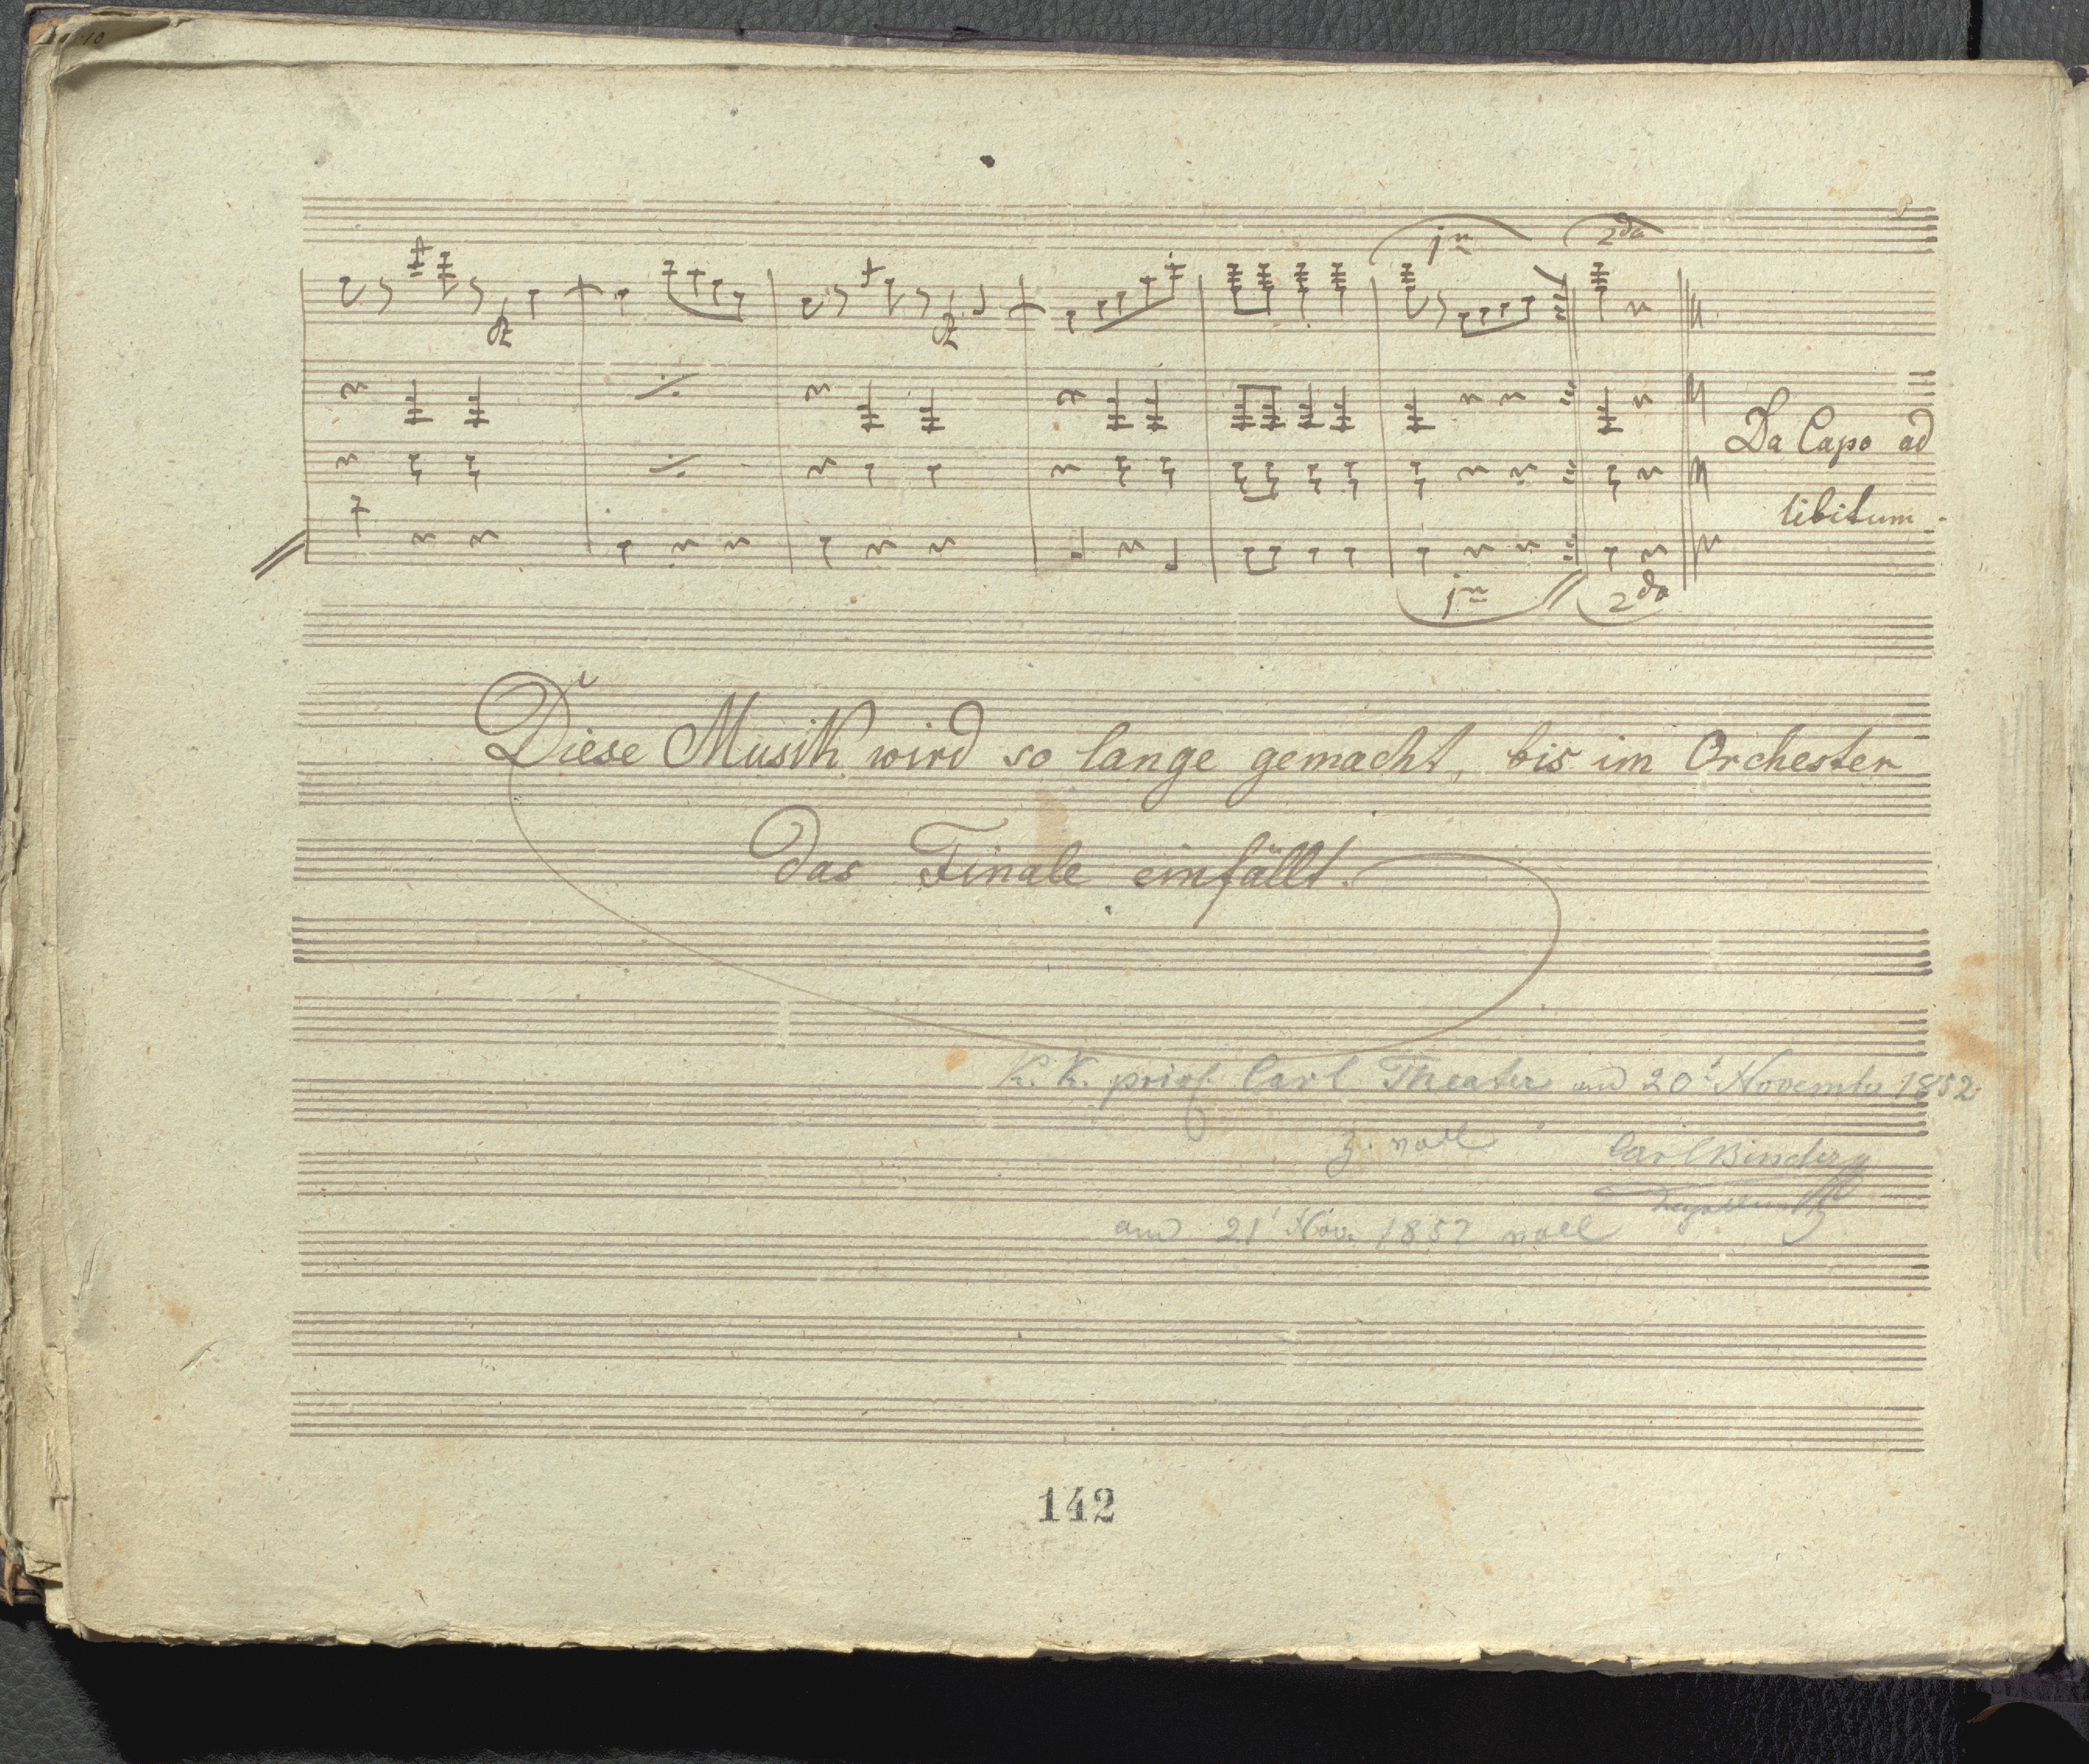 1ma 2da
Da Capo ad
libitum.
1ma 2da
Diese Musik wird so lange gemacht, bis im Orchester
das Finale einfällt.
K. K. priv. Carl Theater am 20t November 1852
z. voll Carl Binder
am 21t Nov. 1852 voll
142